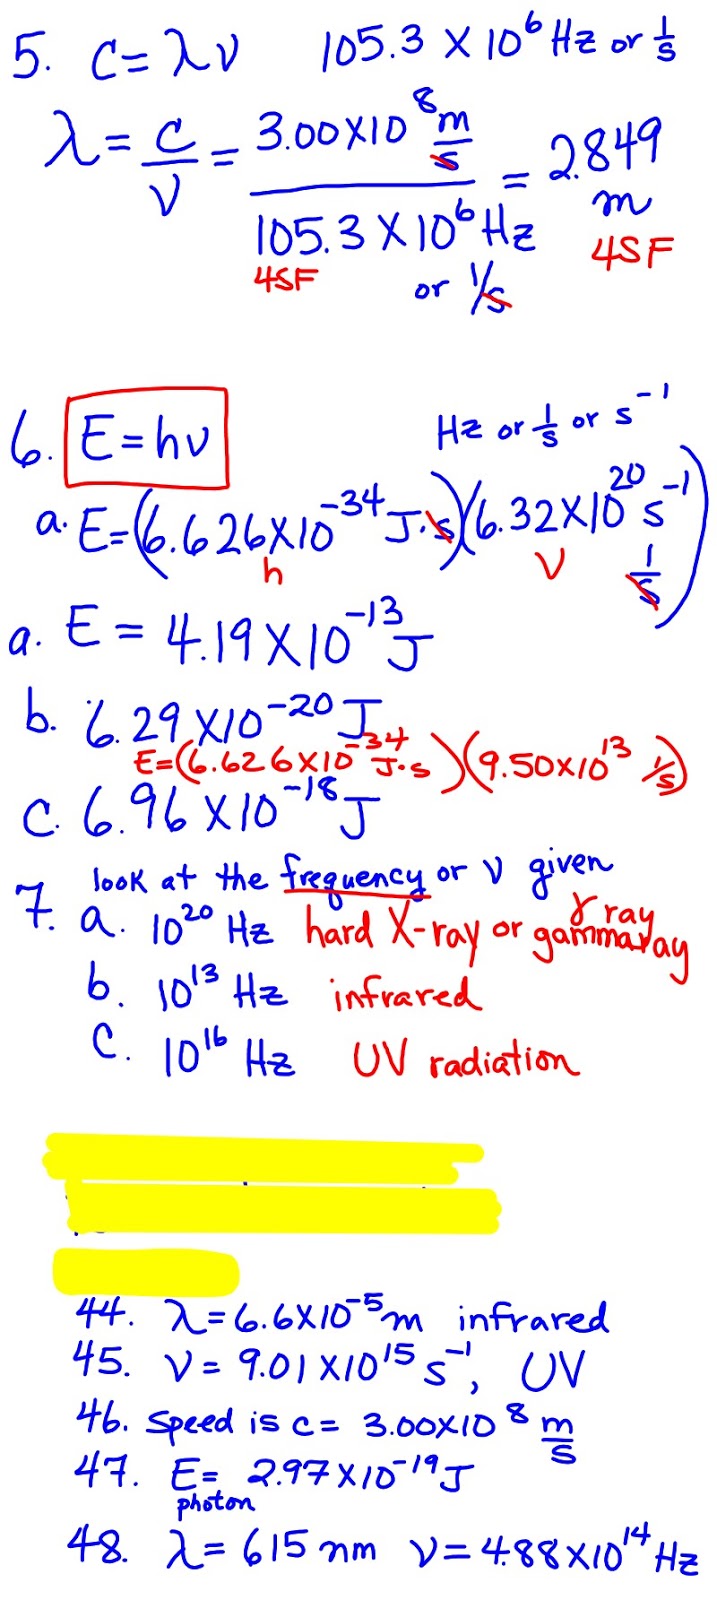 5. c = λν 105.3 X 10⁶ Hz or 1/s
λ = c/ν = 3.00X10⁸ m/s / 105.3 X 10⁶ Hz or 1/s = 2.849 m
4SF 4SF
6. E = hν Hz or 1/s or s⁻¹
a. E = (6.626X10⁻³⁴ J·s)(6.32X10²⁰ s⁻¹)
h ν 1/s
a. E = 4.19 X 10⁻¹³ J
b. 6.29 X10⁻²⁰ J
E=(6.626X10⁻³⁴ J·s)(9.50X10¹³ 1/s)
C. 6.96 X10⁻¹⁸ J
look at the frequency or ν given
7. a. 10²⁰ Hz hard X-ray or γ ray gamma ray
b. 10¹³ Hz infrared
C. 10¹⁶ Hz UV radiation
44. λ = 6.6X10⁻⁵ m infrared
45. ν = 9.01 X10¹⁵ s⁻¹, UV
46. Speed is c = 3.00X10⁸ m/s
47. E photon = 2.97 X10⁻¹⁹ J
48. λ = 615 nm ν = 4.88X10¹⁴ Hz